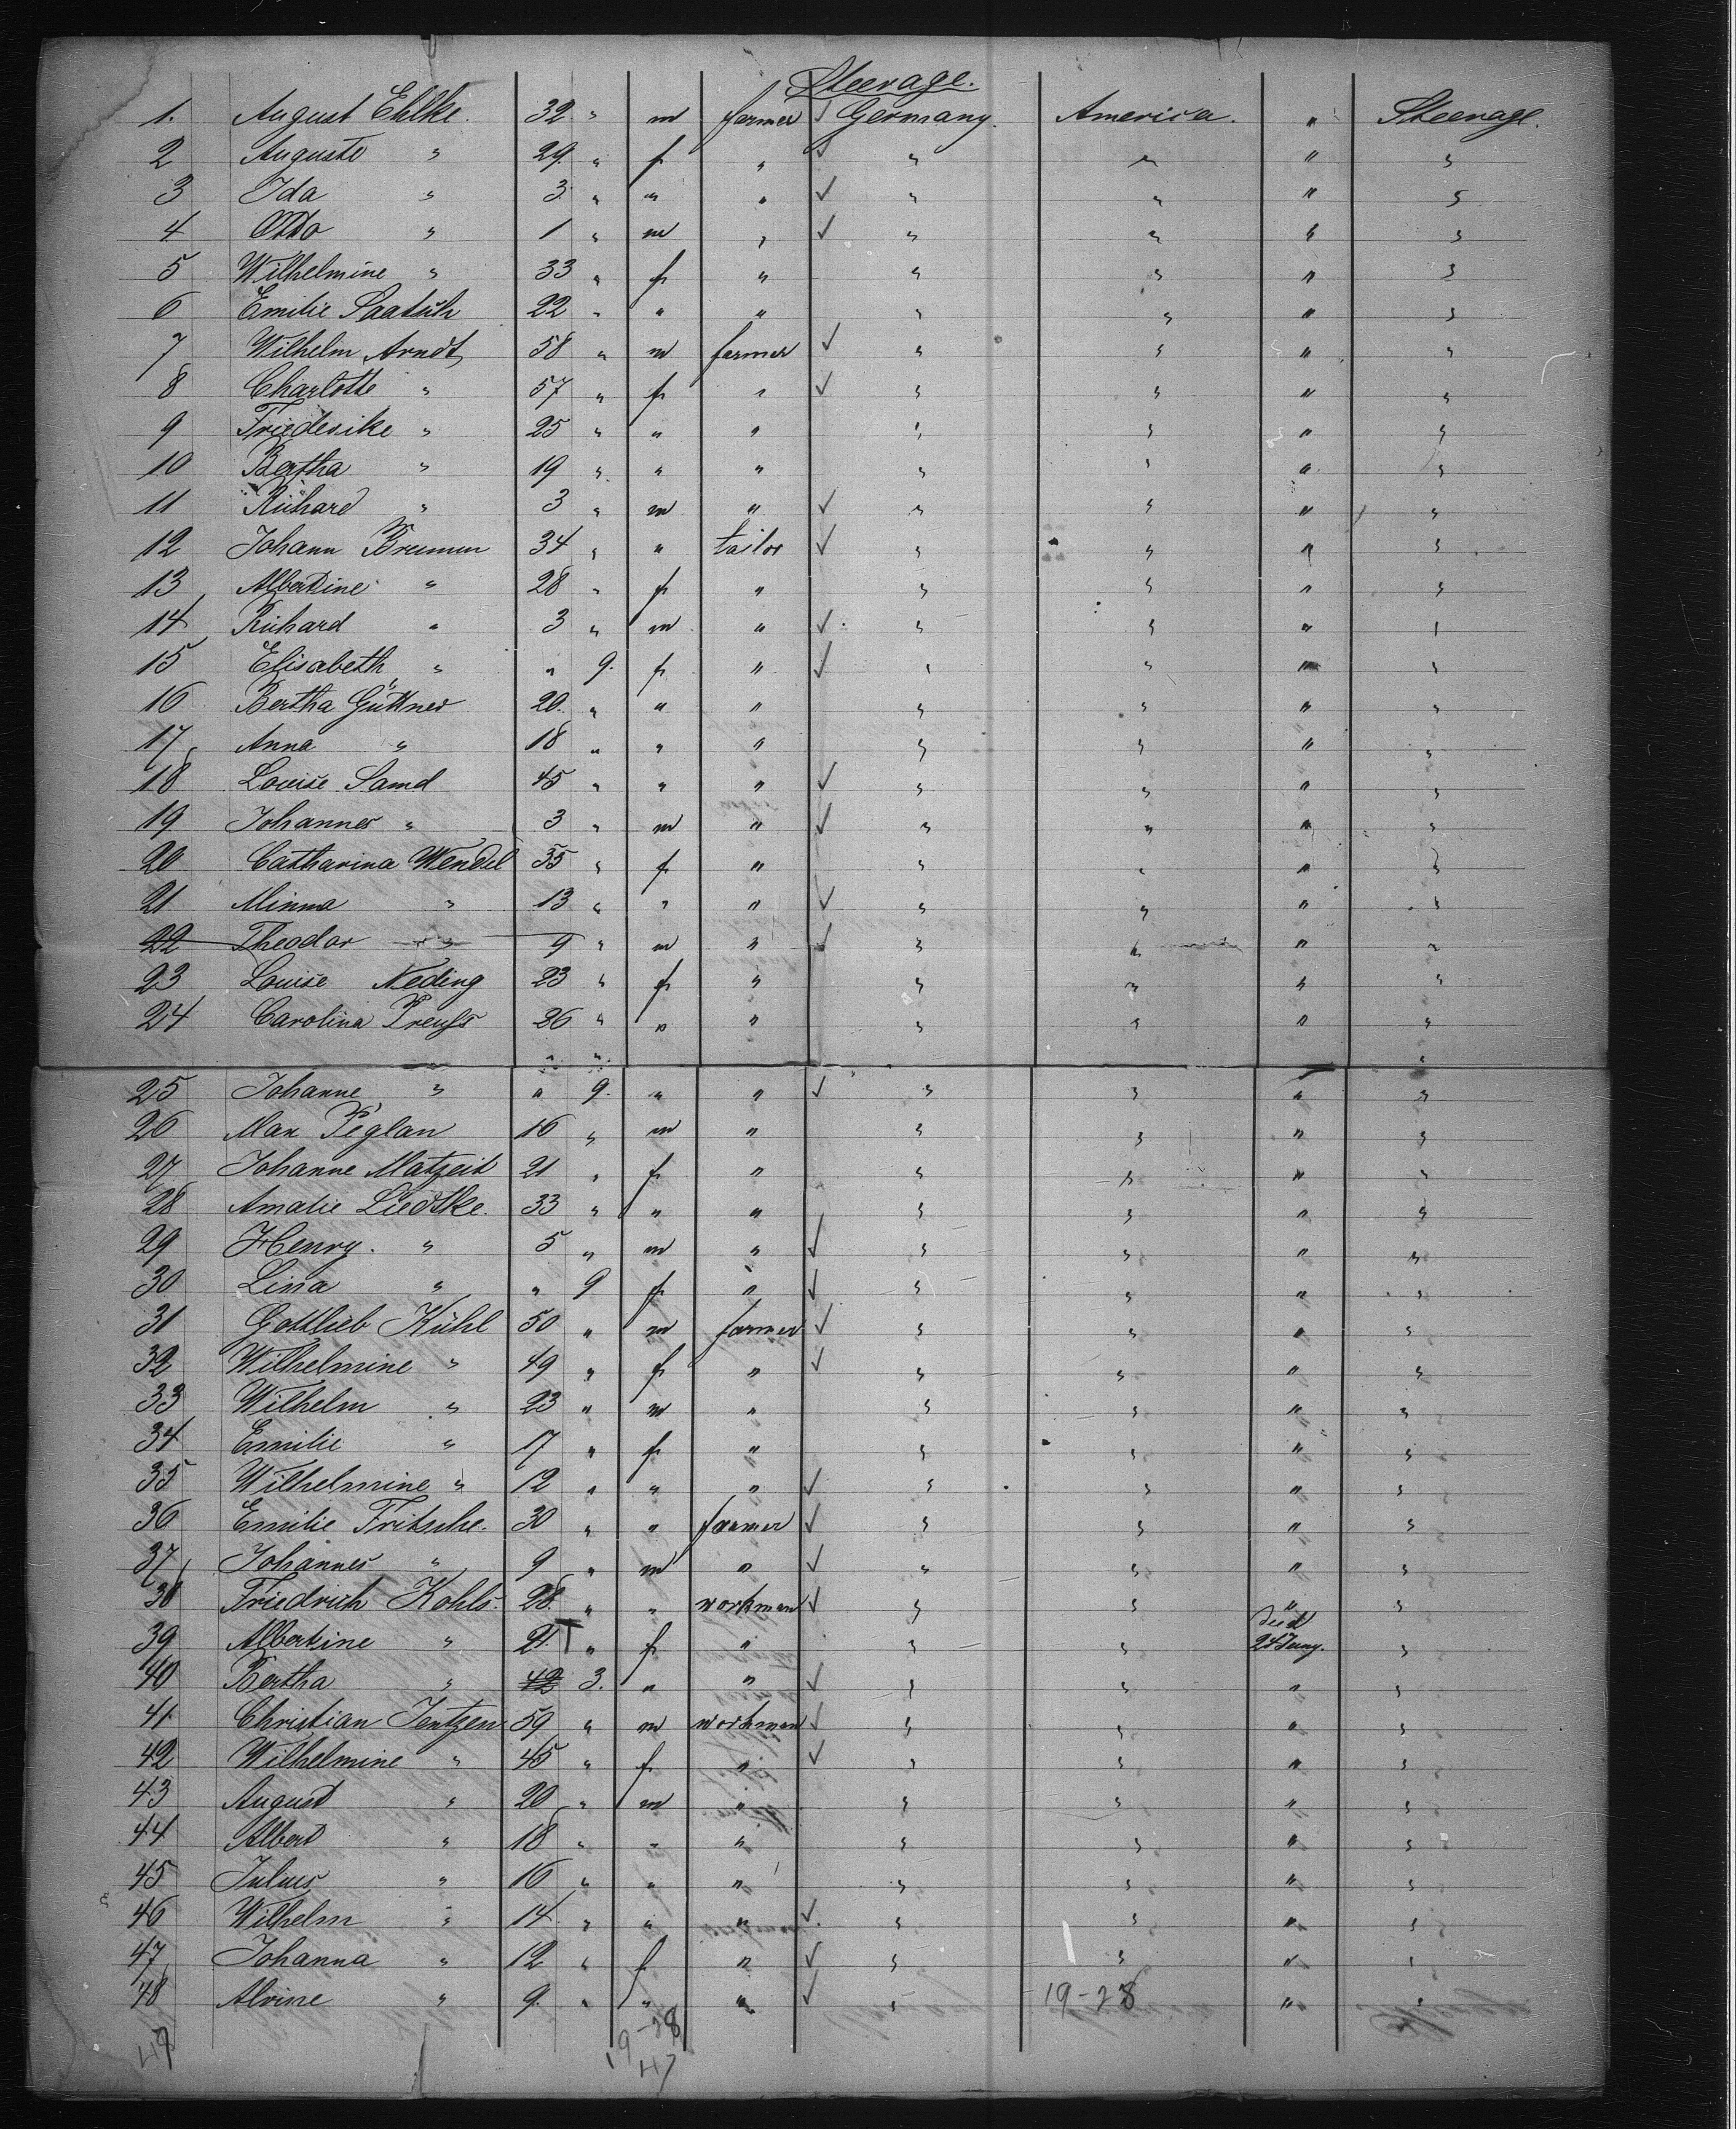 Steerage.
1. August Ehlke. 32 " m farmer ✓ Germany. America. " Steerage.
2 Auguste " 29. " f " ✓ " " " "
3 Ida " 3 " " " ✓ " " " "
4 Otto " 1 " m " ✓ " " " "
5 Wilhelmine " 33 " f " " " " "
6 Emilie 22 " " " " " " "
7 Wilhelm Arndt 58 " m farmer ✓ " " " "
8 Charlotte " 57 " f " ✓ " " " "
9 Friederike " 25 " " " " " " "
10 Bertha " 19 " " " " " " "
11 Richard " 3 " m " ✓ " " " "
12 Johann 34 " " tailor ✓ " " " "
13 Albertine " 28 " f " " " " "
14 Richard " 3 " m " ✓ " " " "
15 Elisabeth " " 9. f " ✓ " " " "
16 Bertha Güttner 20. " " " " " " "
17 Anna " 18 " " " " " " "
18 Louise Samd 45 " " " ✓ " " " "
19 Johannes " 3 " m " ✓ " " " "
20 Catharina Wendel 35 " f " " " " "
21 Minna " 13 " " " ✓ " " " "
22 Theodor " 9 " m " ✓ " " " "
23 Louise Neding 23 " f " " " " "
24 Carolina Preuss 26 " " " " " " "
25 Johanne " " 9. " " ✓ " " " "
26 Max Peglan 16 " m " " " " "
27 Johanne Matzeit 21 " f " " " " "
28 Amalie Liedtke. 33 " " " " " " "
29 Henry. " 5 " m " ✓ " " " "
30 Lina " " 9 f " ✓ " " " "
31 Gottlieb Kühl 50 " m farmer ✓ " " " "
32 Wilhelmine " 49 " f " ✓ " " " "
33 Wilhelm " 23 " m " " " " "
34 Emilie " 17 " f " " " " "
35 Wilhelmine " 12 " " " ✓ " " " "
36 Emilie Fritsche. 30 " " farmer ✓ " " " "
37 Johannes " 9 " m " ✓ " " " "
38 Friedrich Kohls. 28. " " workman ✓ " " " "
39 Albertine " 21. T " f " " " died 24 Juny. "
40 Bertha " 42 3. " " ✓ " " " "
41. Christian Jentzen 59 " m workman ✓ " " " "
42 Wilhelmine " 45 " f " ✓ " " " "
43 August " 20 " m " " " " "
44 Albert " 18 " " " " " " "
45 Julius " 16 " " " " " " "
46 Wilhelm " 14 " " " ✓. " " " "
47 Johanna " 12 " f " ✓ " " " "
48 Alvine " 9. " " " ✓ " 19-28 " "
19-28
47